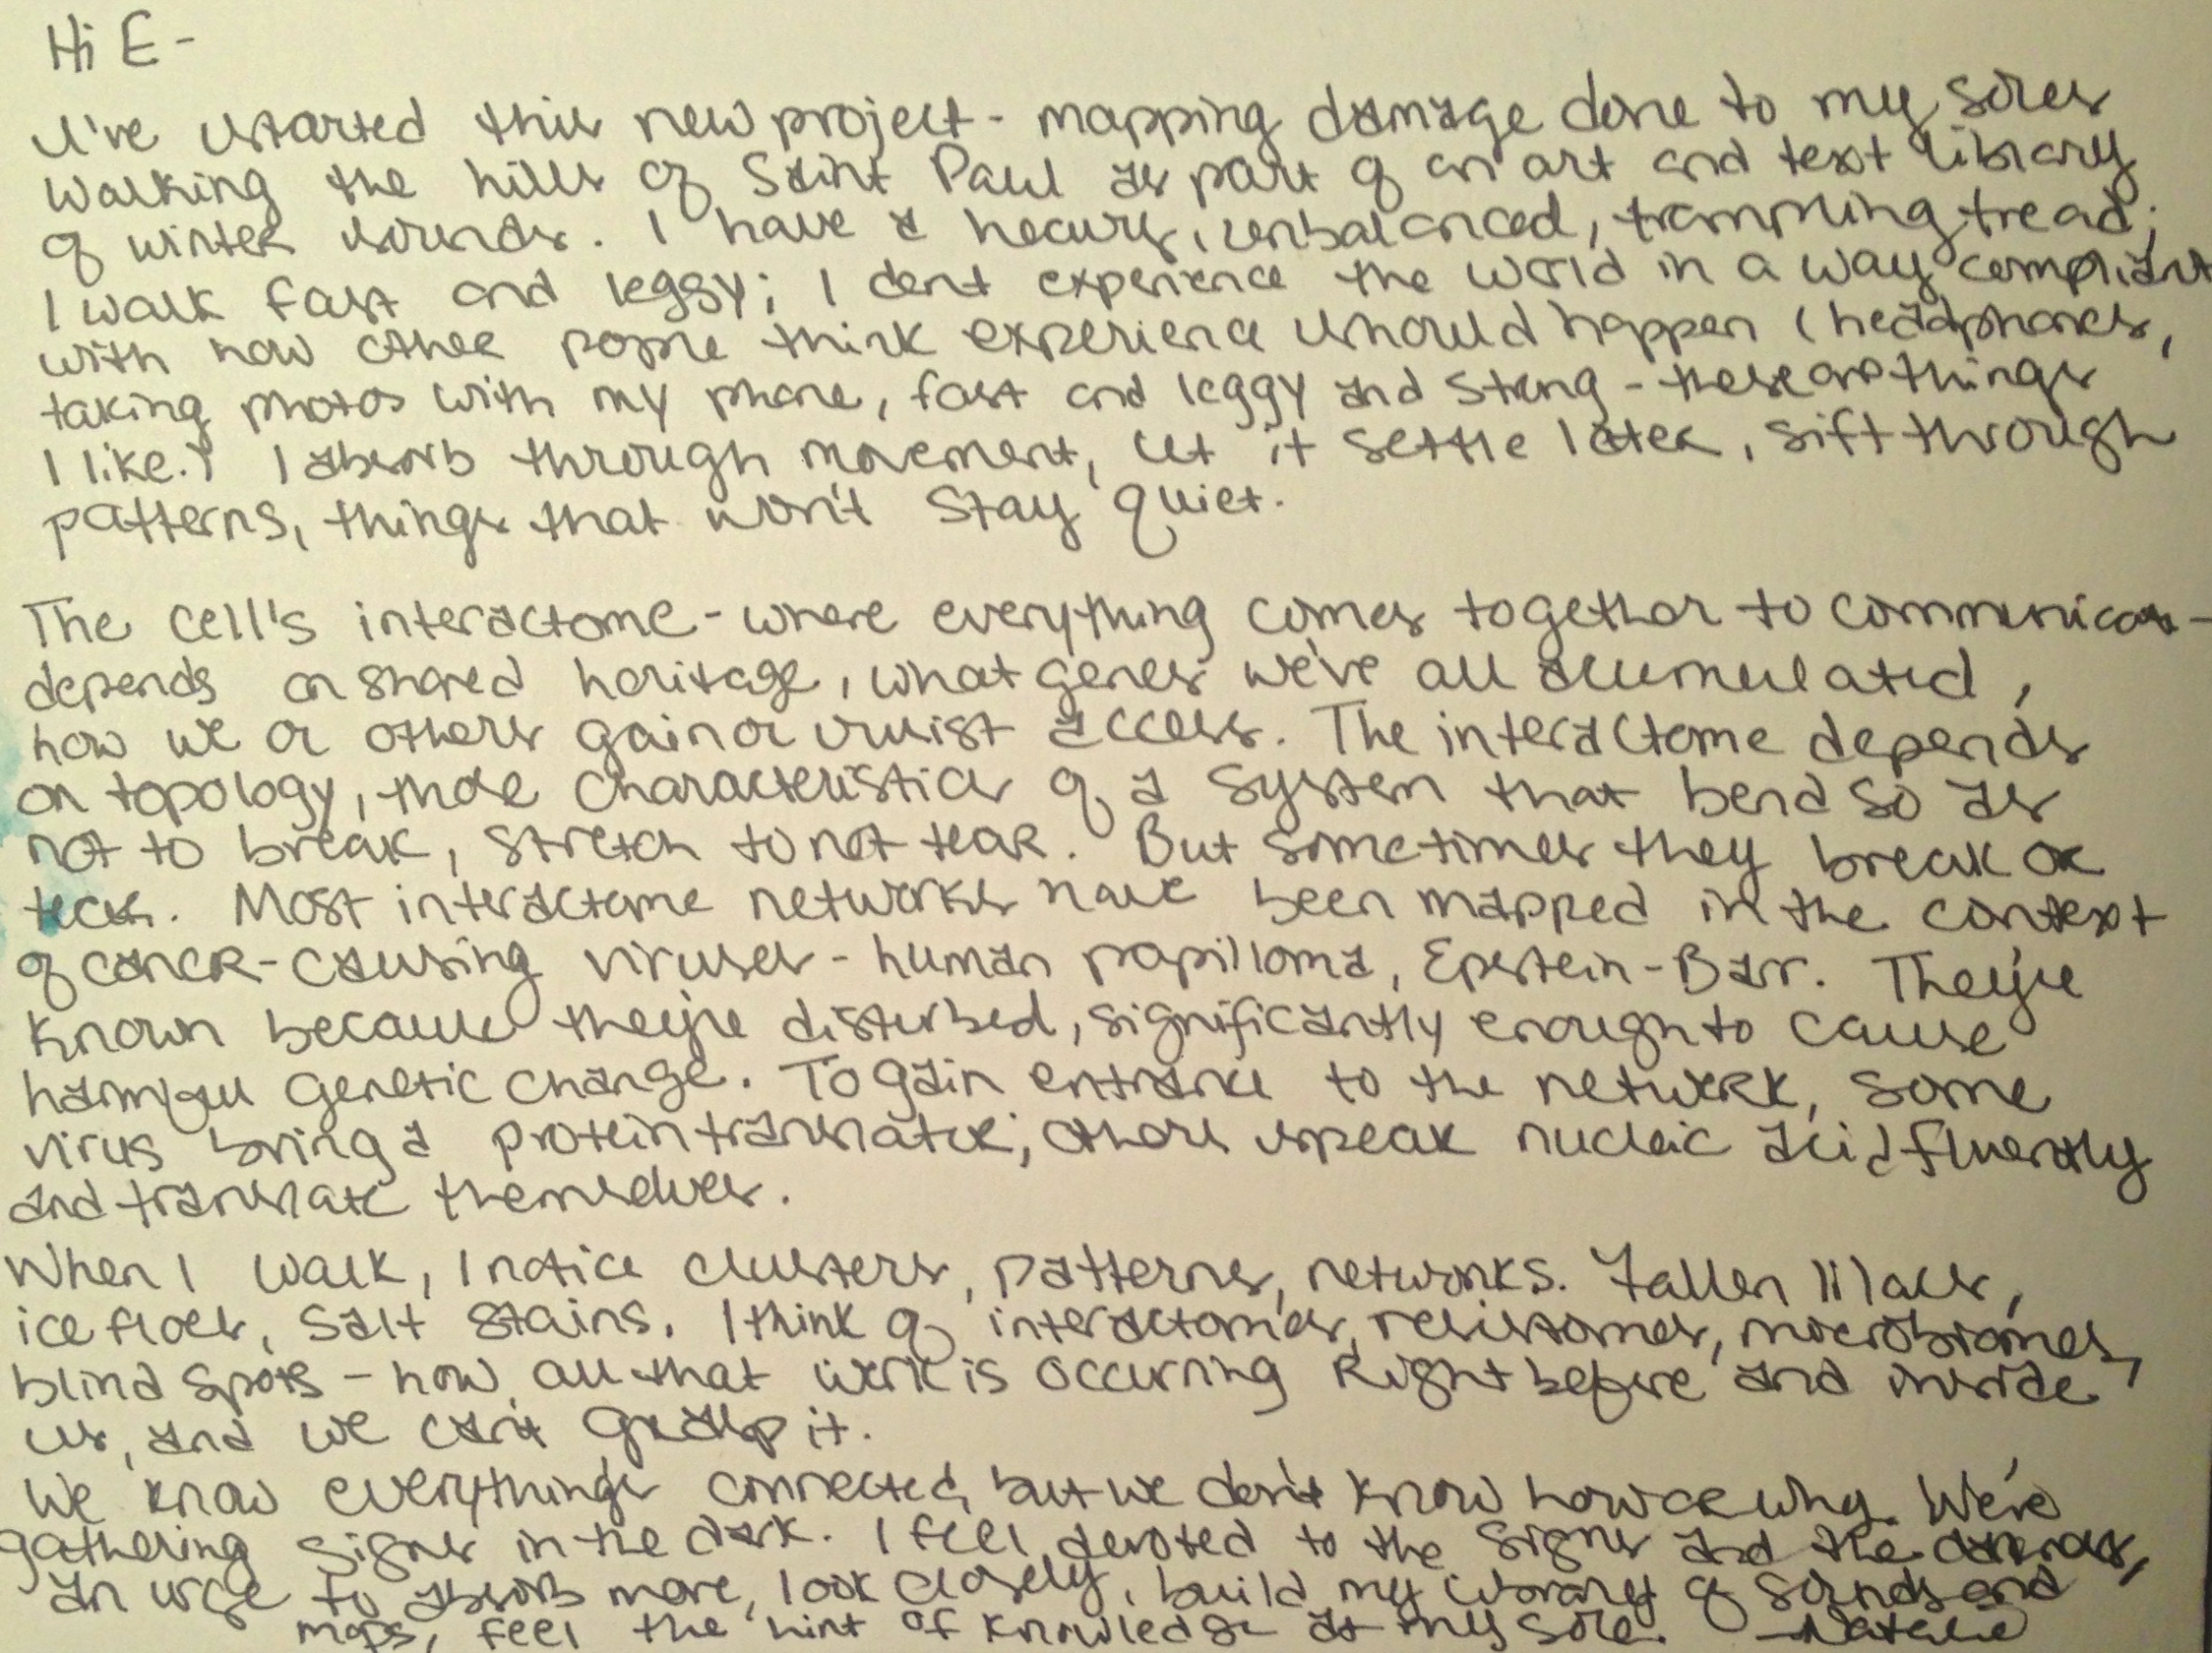 Hi E -
I've started this new project - mapping damage done to my soles
walking the hills of Saint Paul as part of an art and text library
of winter sounds. I have a heavy, unbalanced, trammling tread;
I walk fast and leggy; I don't experience the world in a way compliant
with how other people think experience should happen (headphones,
taking photos with my phone, fast and leggy and strong - these are things
I like.) I absorb through movement, let it settle later, sift through
patterns, things that won't stay quiet.
The cell's interactome - where everything comes together to communicate -
depends on shared heritage, what genes we've all accumulated,
how we or others gain or resist access. The interactome depends
on topology, those characteristics of a system that bend so as
not to break, stretch to not tear. But sometimes they break or
tear. Most interactome networks have been mapped in the context
of cancer-causing viruses - human papilloma, Epstein-Barr. They're
known because they're disturbed, significantly enough to cause
harmful genetic change. To gain entrance to the network, some
virus bring a protein translator; others speak nucleic acid fluently
and translate themselves.
When I walk, I notice clusters, patterns, networks. Fallen lilacs,
ice floes, salt stains. I think of interactomes, resistomes, microbiomes,
blind spots - how all that work is occurring right before and inside
us, and we can't grasp it.
We know everything's connected, but we don't know how or why. We're
gathering signs in the dark. I feel devoted to the signs and the
an urge to absorb more, look closely, build my library of sounds and
maps, feel the hint of knowledge at my sole. - Natalie